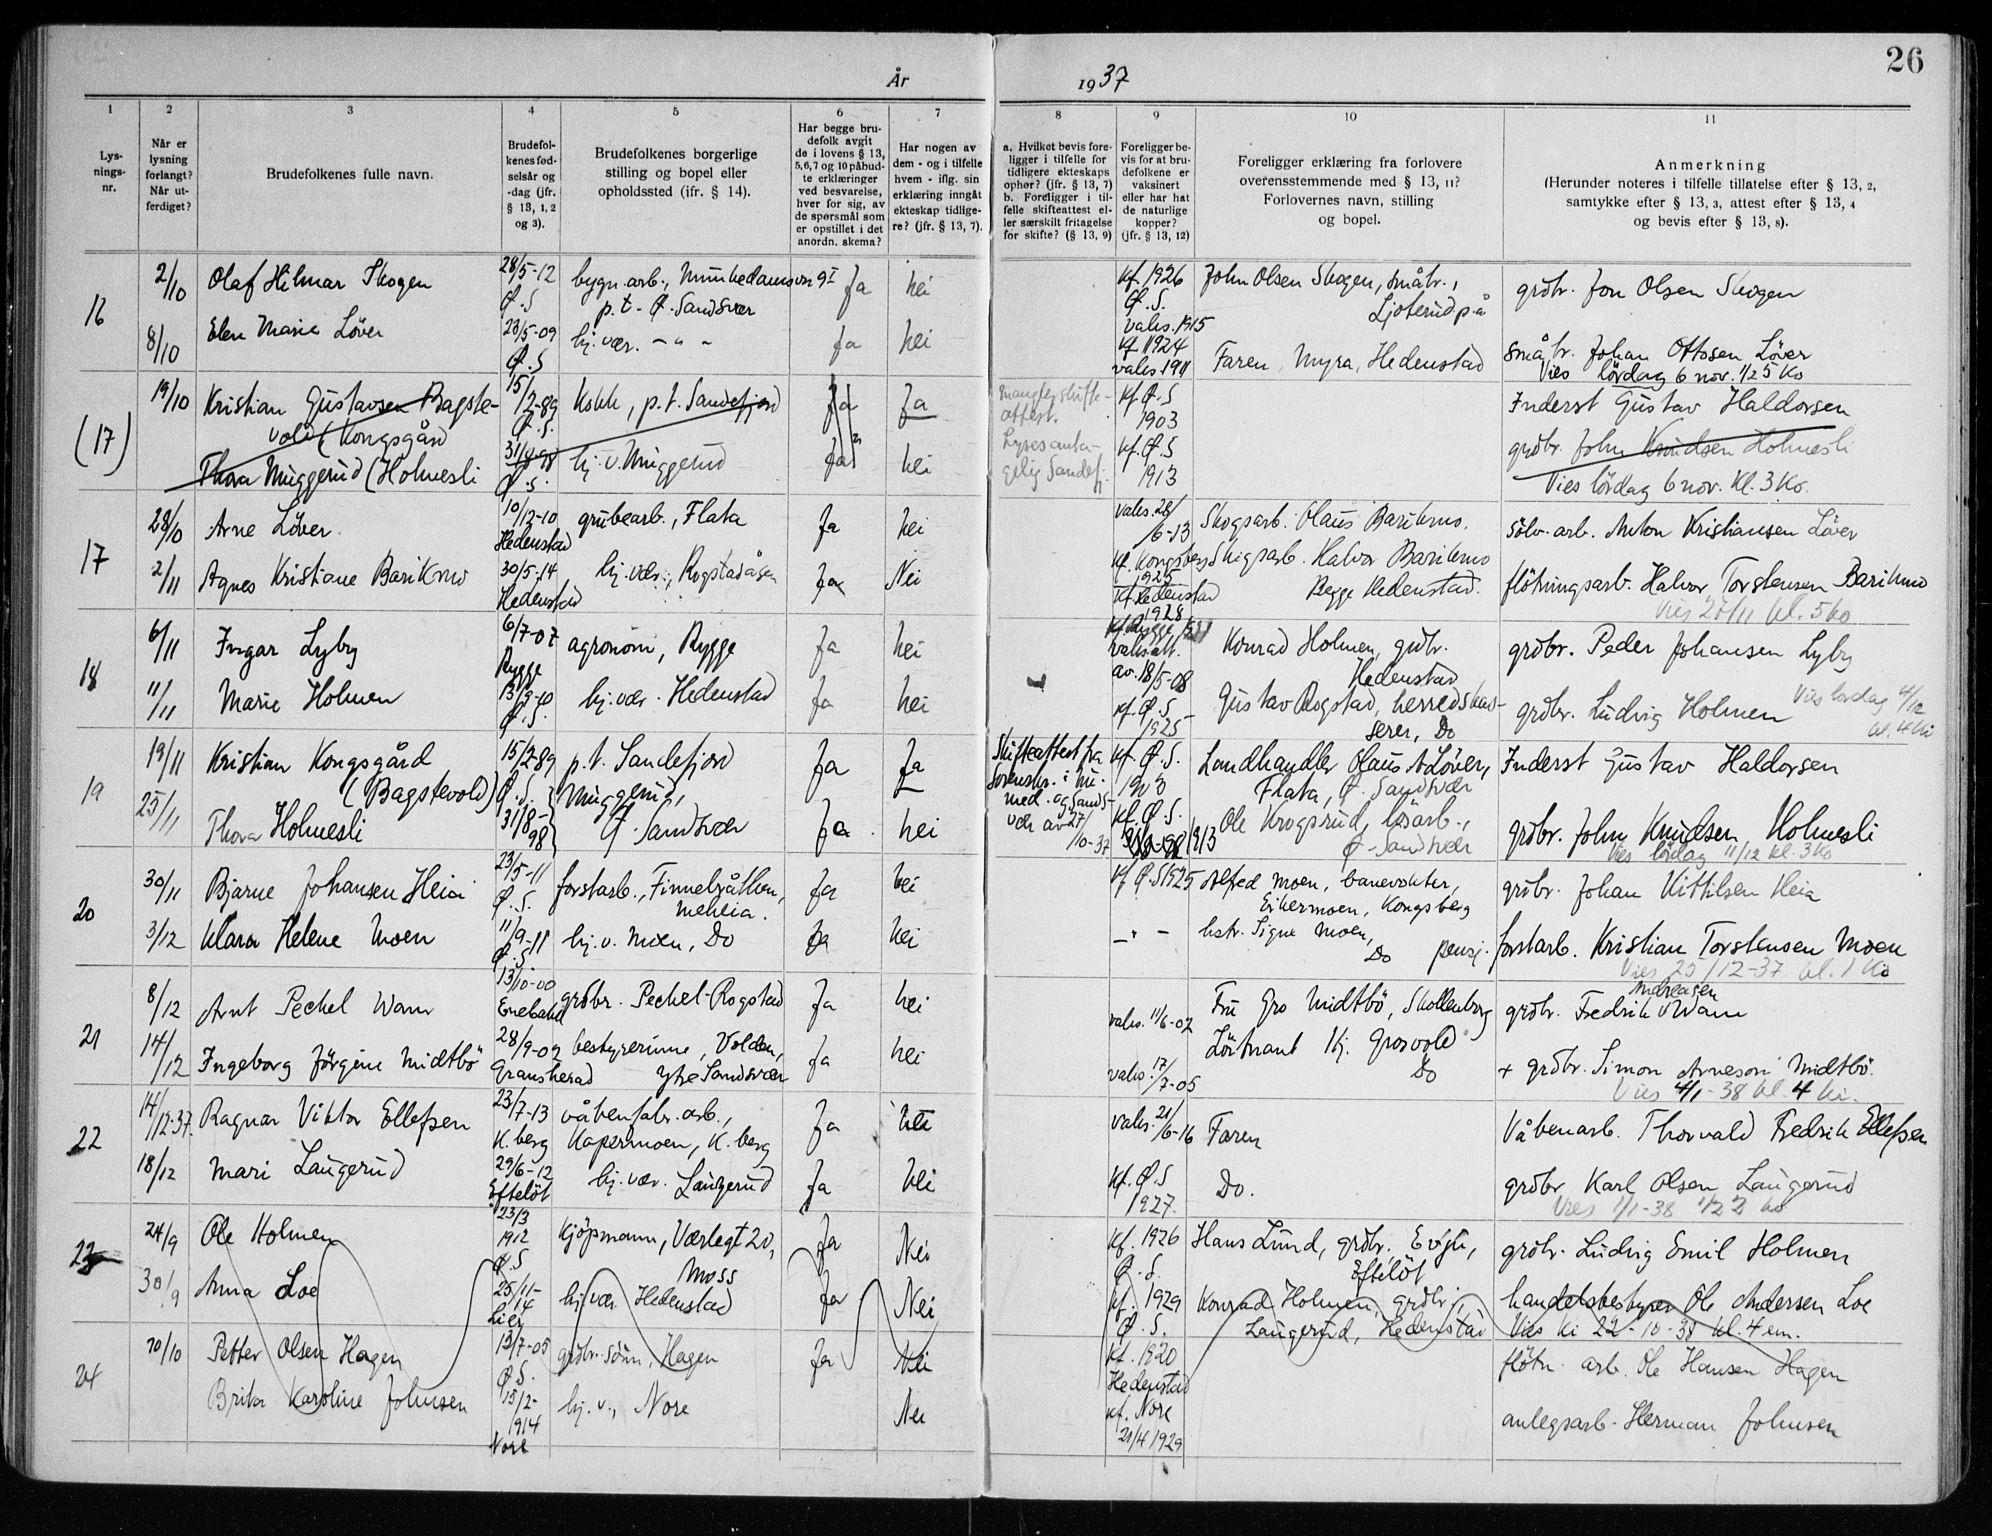 26
År 1937
1
Lysningsnr.
2
Når er lysning forlangt? Når utferdiget?
3
Brudefolkenes fulle navn.
4
Brudefolkenes fødselsår og -dag (jfr. § 13, 1, 2 og 3).
5
Brudefolkenes borgerlige stilling og bopel eller opholdssted (jfr. § 14).
6
Har begge brudefolk avgit de i lovens § 13, 5, 6, 7 og 10 påbudte erklæringer ved besvarelse, hver for sig, av de spørsmål som er opstillet i det anordn. skema?
7
Har nogen av dem - og i tilfelle hvem - iflg. sin erklæring inngåt ekteskap tidligere? (jfr. § 13, 7).
8
a. Hvilket bevis foreligger i tilfelle for tidligere ekteskaps ophør? (jfr. § 13, 7) b. Foreligger i tilfelle skifteattest eller særskilt fritagelse for skifte? (§ 13, 9)
9
Foreligger bevis for at brudefolkene er vaksinert eller har hat de naturlige kopper? (jfr. § 13, 12)
10
Foreligger erklæring fra forlovere overensstemmende med § 13, 11? Forlovernes navn, stilling og bopel.
11
Anmerkning (Herunder noteres i tilfelle tillatelse efter § 13, 2, samtykke efter § 13, 3, attest efter § 13, 4 og bevis efter § 13, 8).
16
2/10 Olaf Hilmar Skogen 28/5-12 Ø.S bygn. arb., Munkedamsvn 9 I p.t. Ø. Sandsvær Ja nei kf. 1926 Ø.S. vaks. 1915 John Olsen Skogen, småbr., Ljoterud p.å grdbr. Jon Olsen Skogen
8/10 Elen Marie Löver 23/5-09 Ø.S hj. vær. - " - ja nei kf 1924 vaks 1911 Faren, Myra, Hedenstad småbr. Johan Ottosen Löver
Vies lördag 6 nov. 1/2 5 Ko
(17)
19/10 Kristian Gustavsen Bagstevold (Kongsgård 15/12-89 Ø.S. Kokk, p.t. Sandefjord Ja Ja mangler skifteattest. kf Ø.S 1903 Inderst Gustav Haldorsen
Thora Muggerud (Holmesli 31/8-98 Ø.S. hj. v. Muggerud Ja nei Lyses antagelig Sandefj. kf. Ø.S 1913 grdbr. John Knudsen Holmesli
Vies lördag 6 nov. kl. 3 Ko.
17
28/10 Arne Löver 10/12-10 Hedenstad grubearb., Flata Ja nei vaks. 28/6-13 Skogsarb. Olaus Barikmo. sölv. arb. Anton Kristiansen Löver
2/11 Agnes Kristiane Barikmo 30/5-14 Hedenstad hj. vær., Rogstadåsen Ja Nei kf. Kongsberg 1925 kf. Hedenstad 1928 Skogsarb. Halvor Barikmo Begge Hedenstad. flötningsarb. Halvor Torstensen Barikmo
Vies 27/11 kl. 5 Ko
18
6/11 Ingar Lyby 6/7-07 Rygge agronom, Rygge Ja nei kf. Rygge vaks. att. av. 18/5-08 Konrad Holmen, grdbr. Hedenstad grdbr. Peder Johansen Lyby
11/11 Marie Holmen 13/9-10 Ø.S. hj. vær. Hedenstad Ja nei kf. Ø.S. 1925 Gustav Rogstad, herredskasserer, Do grdbr. Ludvig Holmen
Vies lördag 4/12 kl. 4 Ki
19
19/11 Kristian Kongsgård (Bagstevold) 15/12-89 Ø.S. p.t. Sandefjord Ja Ja Skifteattest fra Sorenskr. i Numed. og Sandsvær av 27/10-37 kf. Ø.S. 1903 Landhandler Olaus A Löver, Flata, Ø. Sandsvær Inderst Gustav Haldorsen
25/11 Thora Holmesli 31/8-98 Muggerud, Ø. Sandsvær Ja nei kf. Ø.S. 1913 Ole Krogsrud, lösarb., Ø. Sandsvær grdbr. John Knudsen Holmesli
Vies lördag 11/12 kl. 3 Ko
20
30/11 Bjarne Johansen Heia 23/5-11 Ø.S. forstarb., Finnebråthen, Meheia. Ja nei kf Ø.S 1925 Alfred Moen, banevokter, Eikermoen, Kongsberg grdbr. Johan Kittilsen Heia
3/12 Klara Helene Moen 11/9-11 Ø.S hj. v. Moen, Do Ja nei - " - hstr. Signe Moen, Do pensj. forstarb. Kristian Torstensen Moen
Vies 25/12-37 kl. 1 Ko
21
8/12 Arnt Pechel Wam 13/10-00 Enebakk grdbr. Pechel-Rogstad Ja nei vaks. 11/6-02 Fru Gro Midtbö, Skollenborg grdbr. Fredrik Andreasen Wam
14/12 Ingeborg Jörgine Midtbö 28/9-02 Gransherad bestyrerinne, Volden, Ytre Sandsvær Ja nei vaks. 17/7-05 Löitnant Kj. Grosvold Do + grdbr. Simon Arneson Midtbö.
Vies 4/1-38 kl. 4 Ki.
22
14/12-37. Ragnar Viktor Ellefsen 23/7-13 K.berg våbenfabr. arb., Kapermoen, K.berg Ja nei vaks. 21/6-16 Faren Våbenarb. Thorvald Fredrik Ellefsen
18/12 Mari Laugerud 29/6-12 Eftelöt hj. vær. Laugerud Ja nei kf. Ø.S 1927. Do. grdbr. Karl Olsen Laugerud
Vies 1/1-38 1/2 2 ko
23
24/9 Ole Holmen 23/3 1912 Ø.S Kjöpmann, Værlegt 20, Moss Ja Nei kf. 1926 Ø.S. Hans Lund, grdbr. Evju, Eftelöt grdbr. Ludvig Emil Holmen
30/9 Anna Loe 25/11-14 Lier hj. vær. Hedenstad Ja Nei kf. 1929 Ø.S. Konrad Holmen, grdbr., Laugerud, Hedenstad handelsbestyrer Ole Andersen Loe
Vies Ki 22-10-38 kl. 4 em.
24
20/10 Petter Olsen Hagen 13/7-05 Ø.S. grdbr. sönn, Hagen Ja Nei kf. 1920 Hedenstad flötn. arb. Ole Hansen Hagen
Brita Karoline Johnsen 15/2-914 Nore hj. v., Nore Nei kf. Nore 21/4 1929 anlegsarb. Herman Johnsen